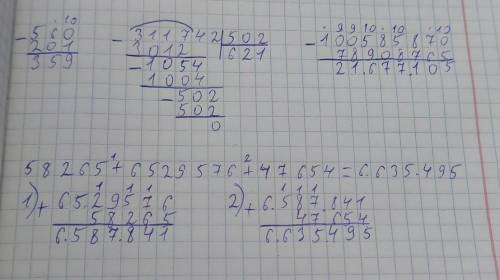 10
- 560
201
359
- 311742 | 502
3012 | 621
- 1054
1004
- 502
502
0
9910.10 10
- 100585870
78908765
21.677.105
1 2
58265 + 6529576 + 47654 = 6.635.495
1) 1 1 1
+ 65.29576
58265
6.587.841
2) 1 1 1
+ 6.587841
47.654
6.635.495